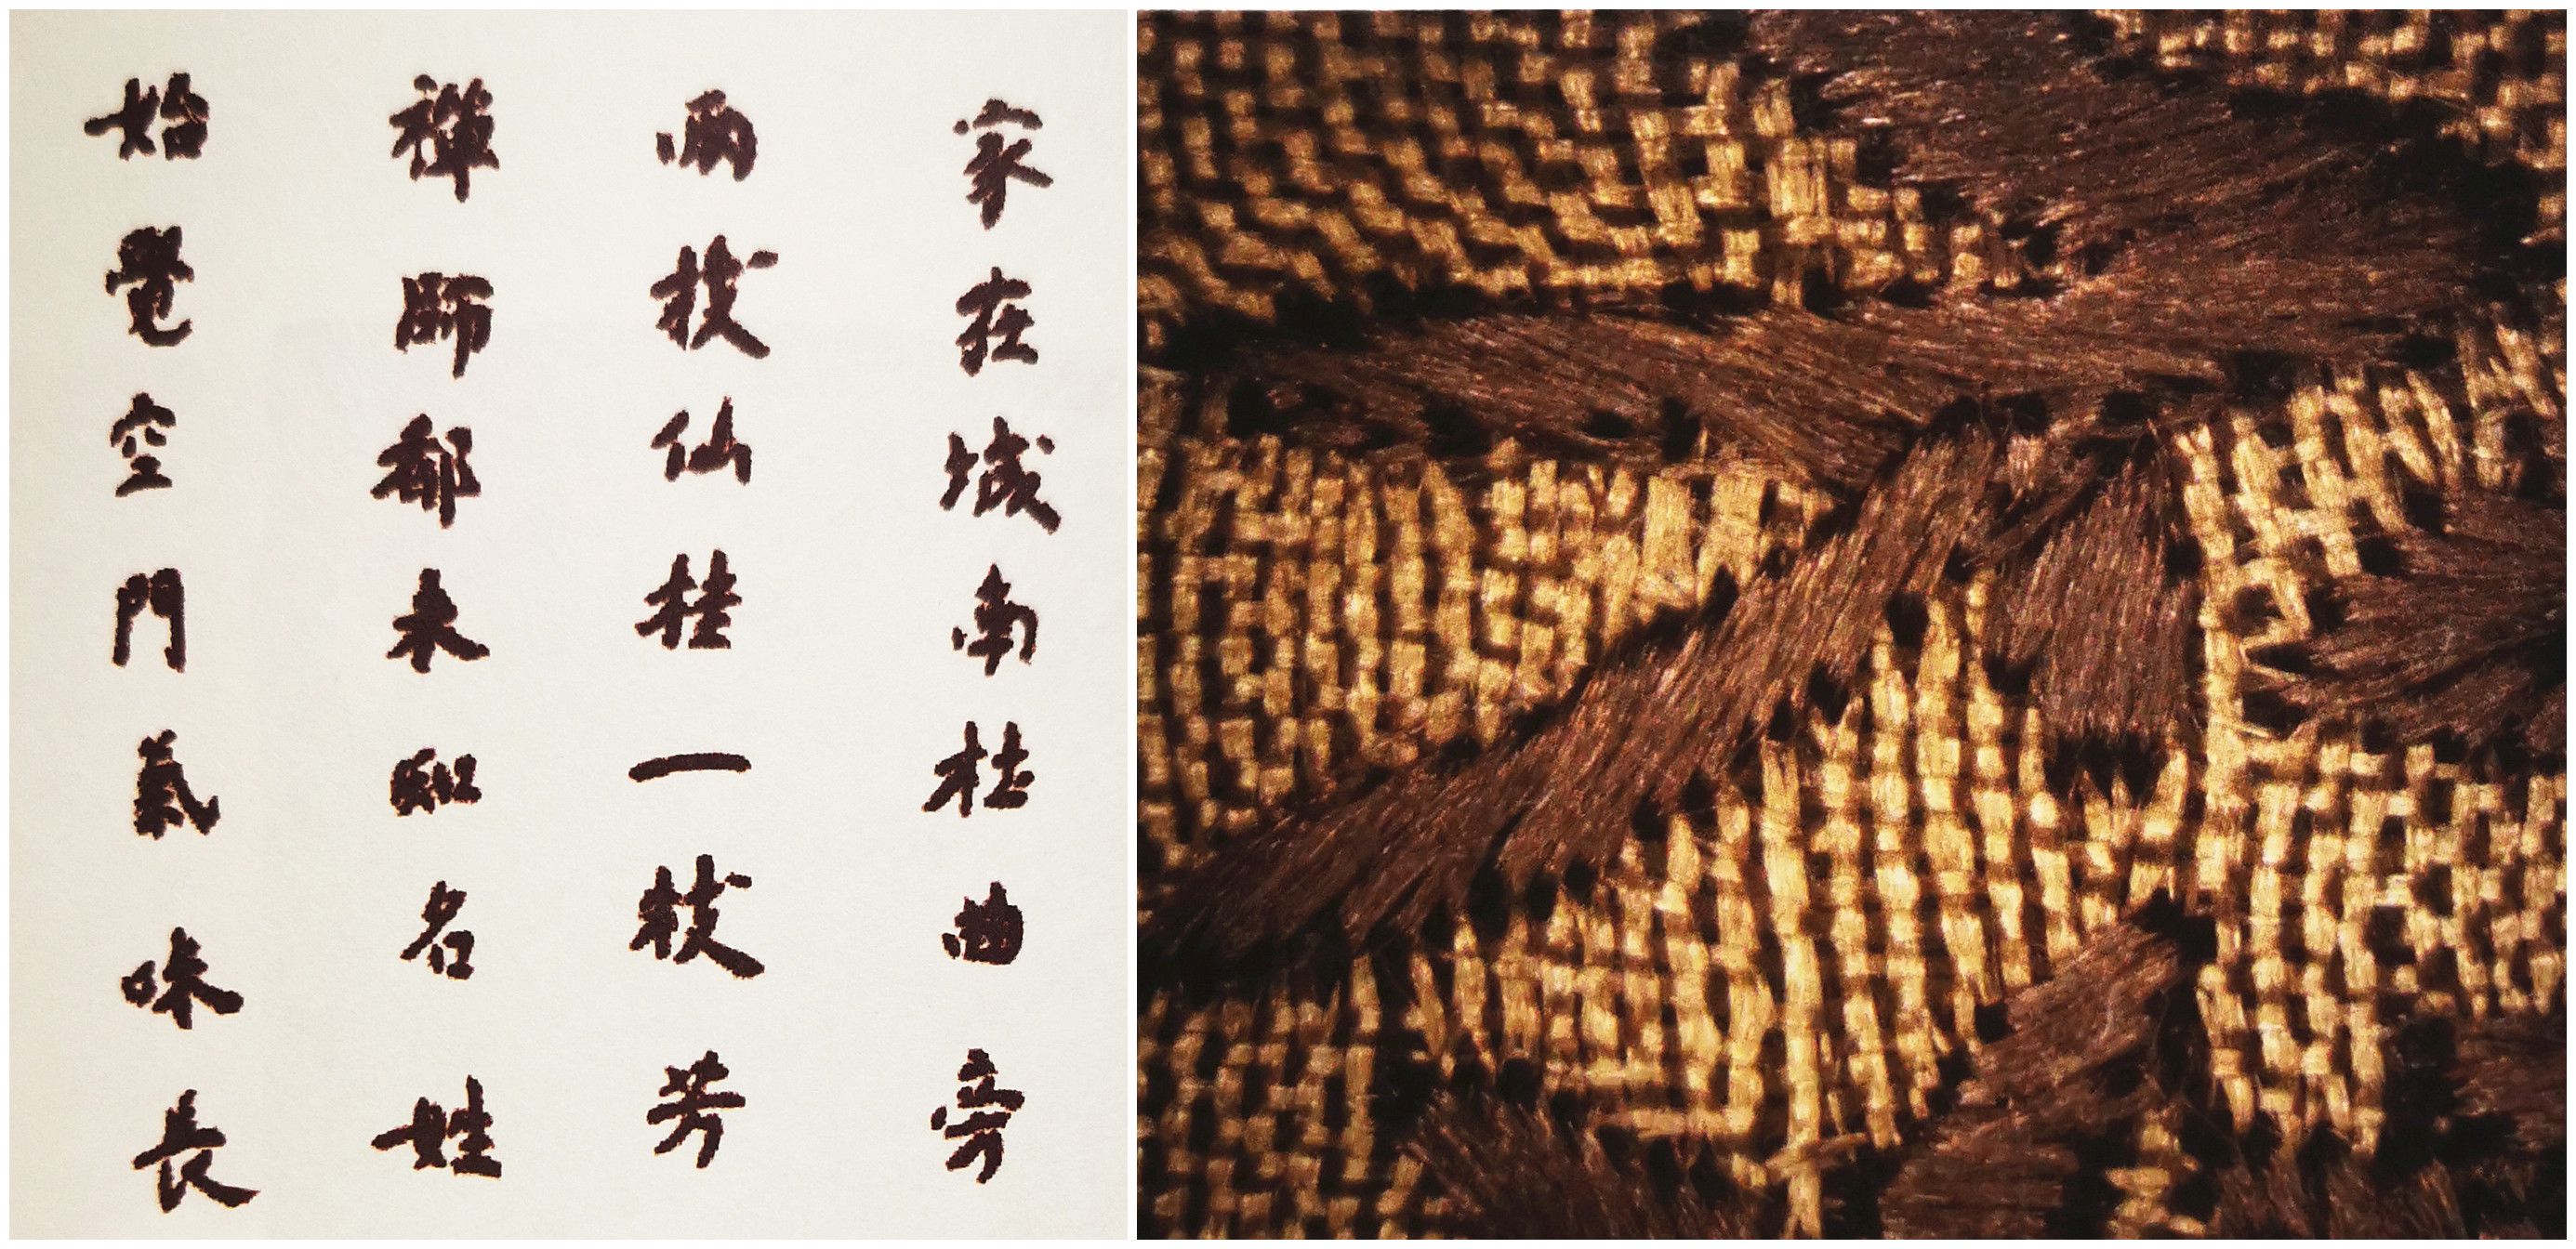 家在城南杜曲旁
兩枝仙桂一枝芳
禪師都未知名姓
始覺空門氣味長